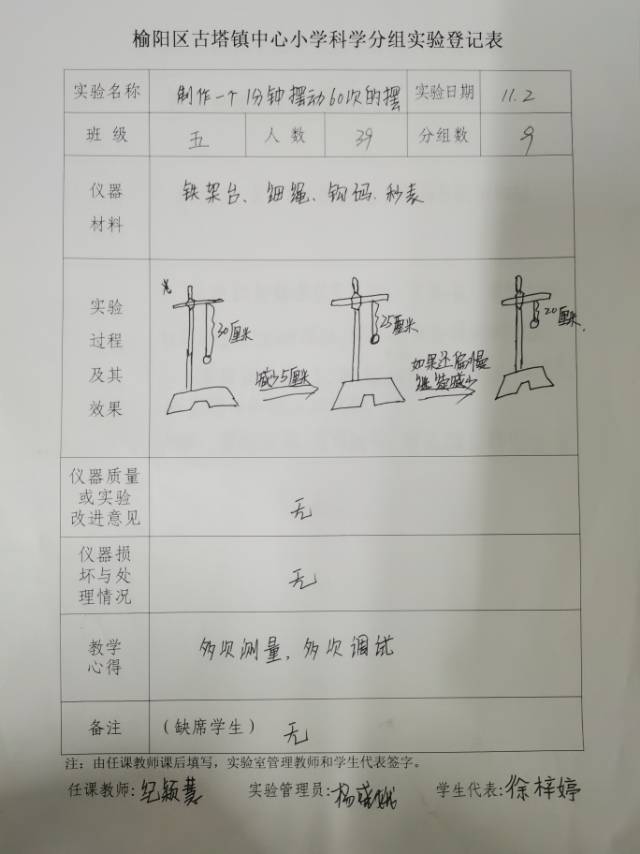 榆阳区古塔镇中心小学科学分组实验登记表
实验名称 制作一个1分钟摆动60次的摆 实验日期 11.2
班级 五 人数 39 分组数 9
仪器材料 铁架台、细绳、钩码、秒表
实验过程及其效果
30厘米
减少5厘米
25厘米
如果还偏慢
继续减少
20厘米
仪器质量或实验改进意见 无
仪器损坏与处理情况 无
教学心得 多次测量，多次调试
备注 （缺席学生） 无
注：由任课教师课后填写，实验室管理教师和学生代表签字。
任课教师：纪颖慧 实验管理员：杨 学生代表：徐梓婷